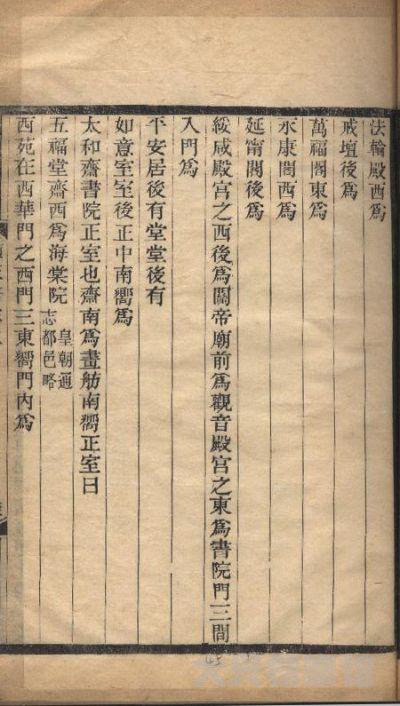 法輪殿西為
戒壇後為
萬福閣東為
永康閣西為
延甯閣後為
綏成殿宮之西後為關帝廟前為觀音殿宮之東為書院門三間
入門為
平安居後有堂堂後有
如意室室後正中南嚮為
太和齋書院正室也齋南為畫舫南嚮正室曰
五福堂齋西為海棠院皇朝通志都邑略
西苑在西華門之西門三東嚮門內為
45